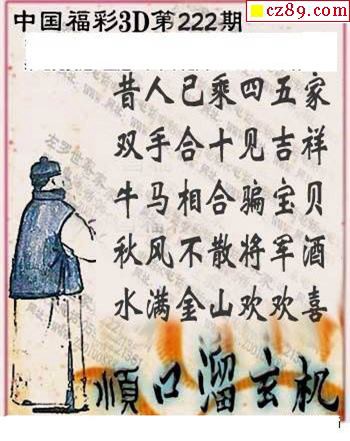 cz89.com
中国福彩3D第222期
昔人已乘四五家
双手合十见吉祥
牛马相合骗宝贝
秋风不散将军酒
水满金山欢欢喜
順口溜玄机